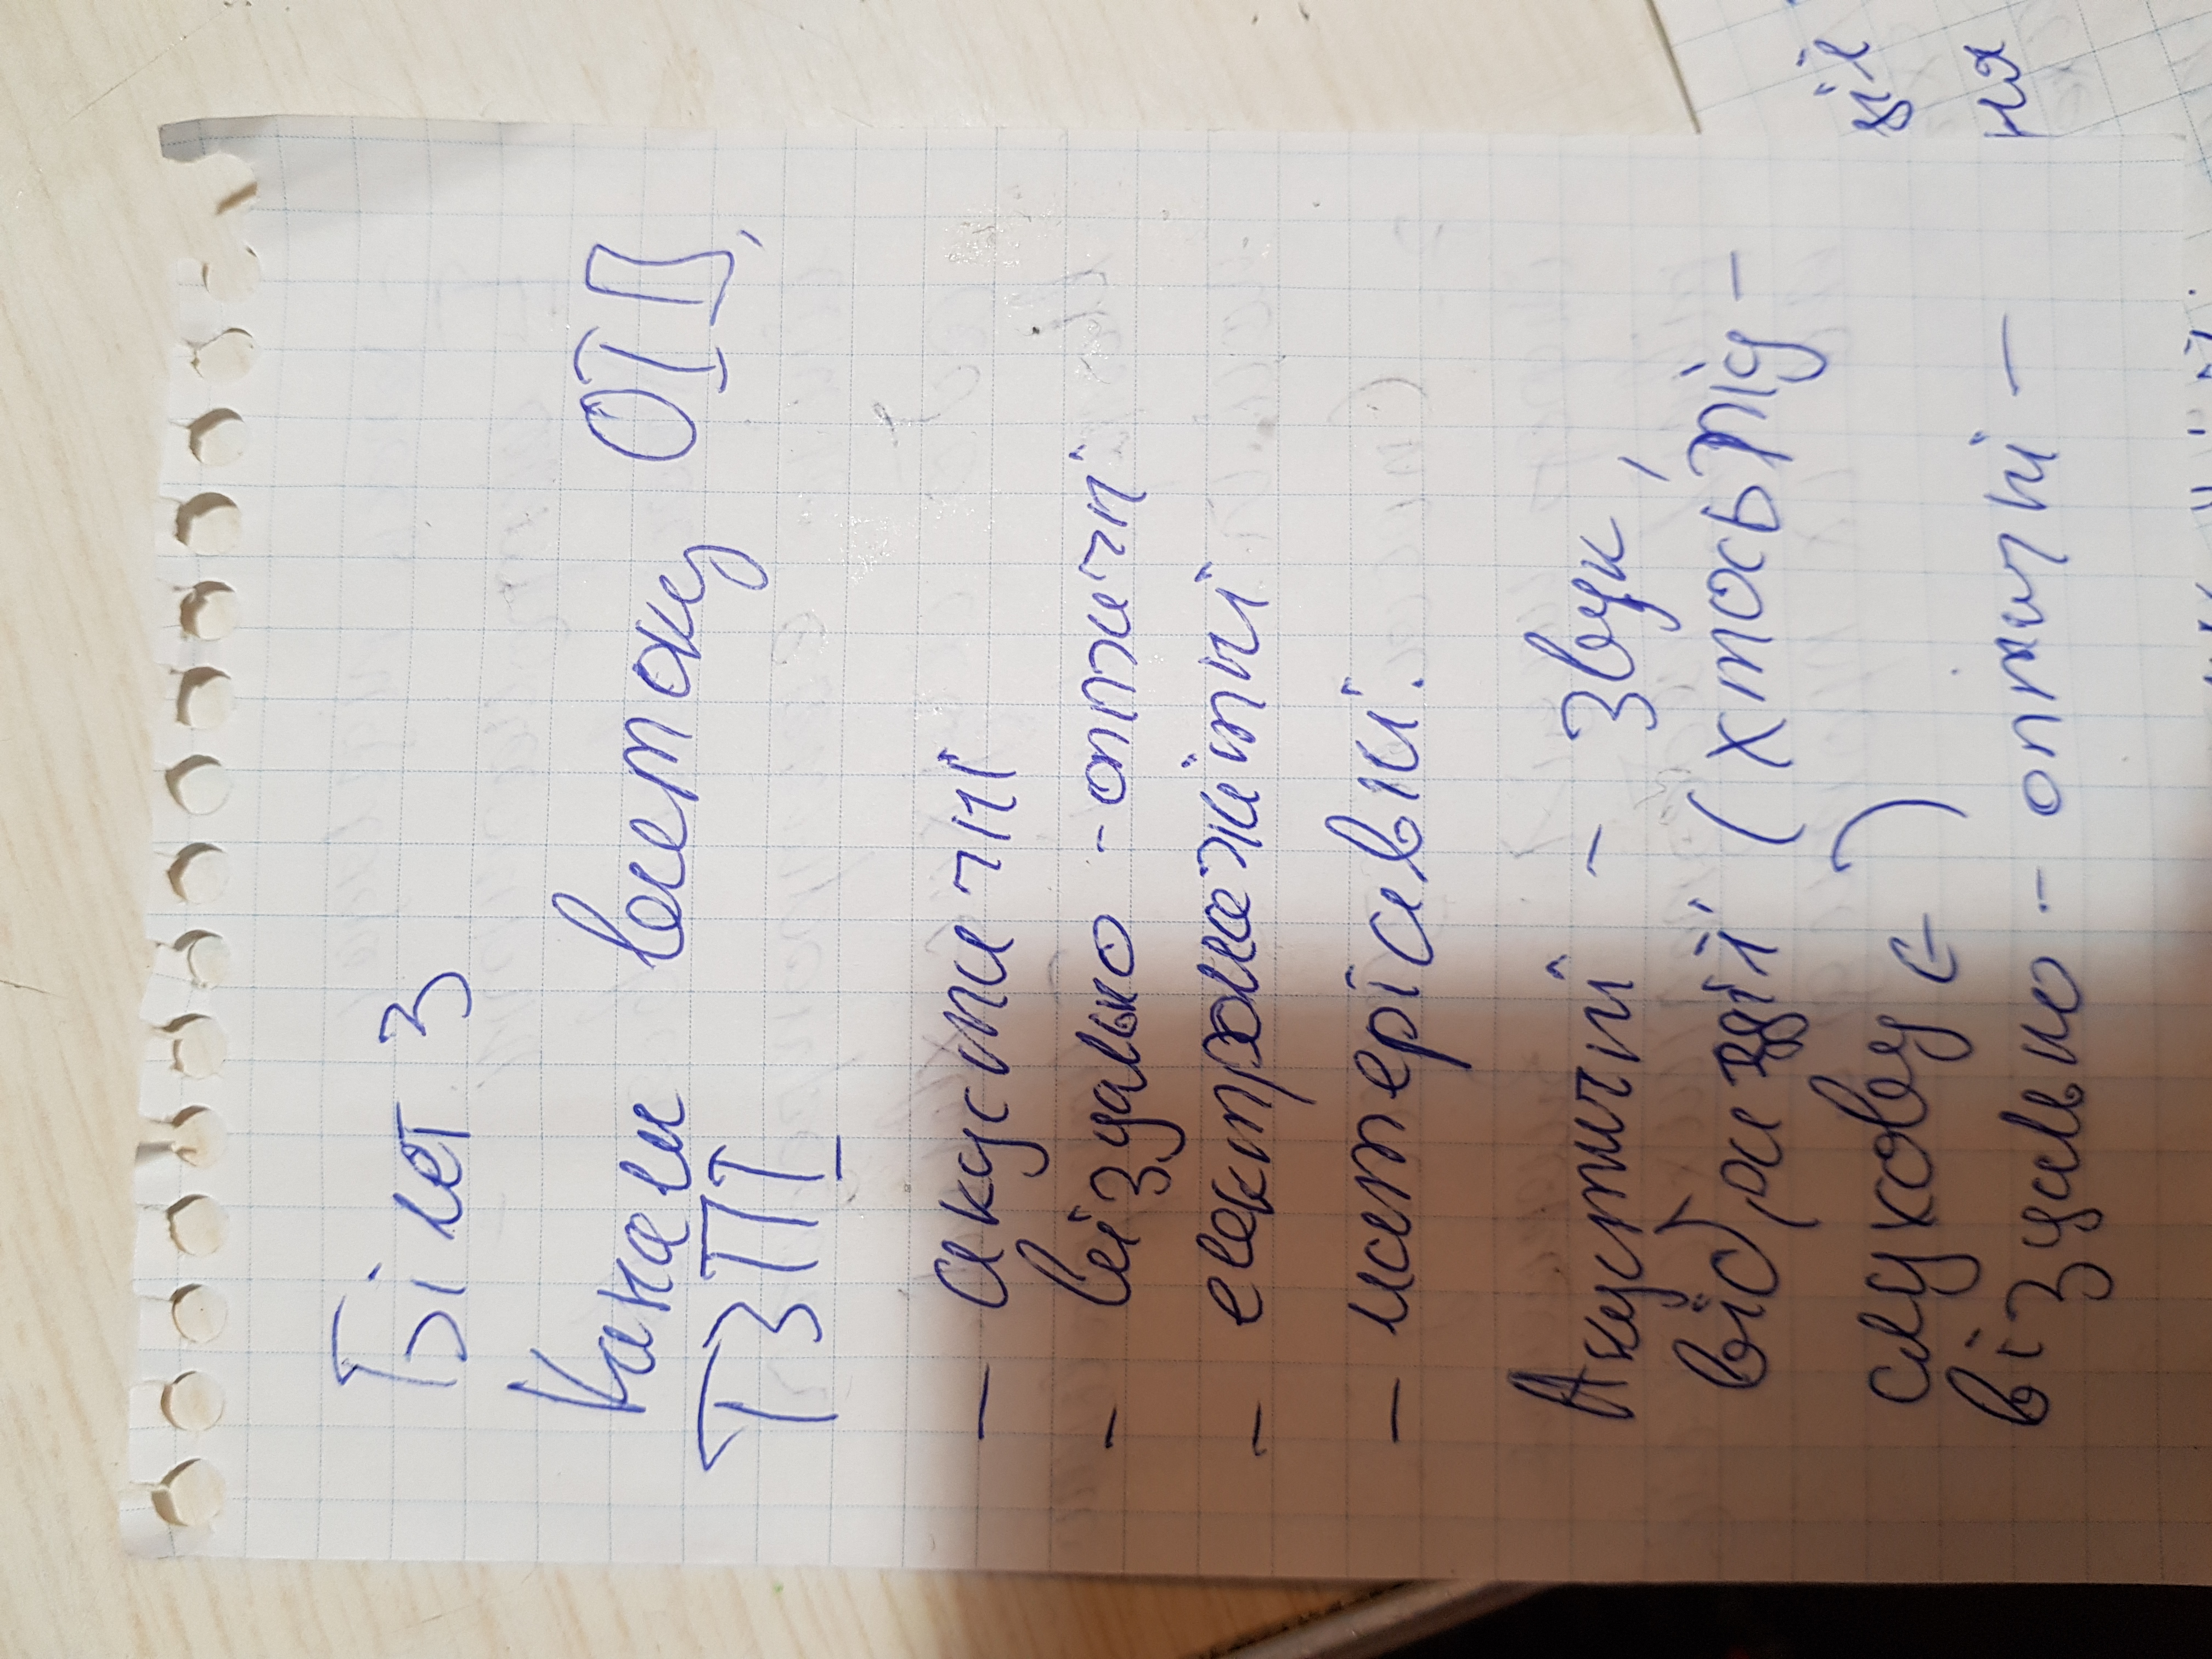 Білет 3
Канали витоку ОІД,
ТЗПІ
- акустичні
- візуально - оптичні
- електромагнітні
- матеріавні.
Акустичні - звук,
вібрації (хтось під-
слуховує)
візуально - оптичні -
ня